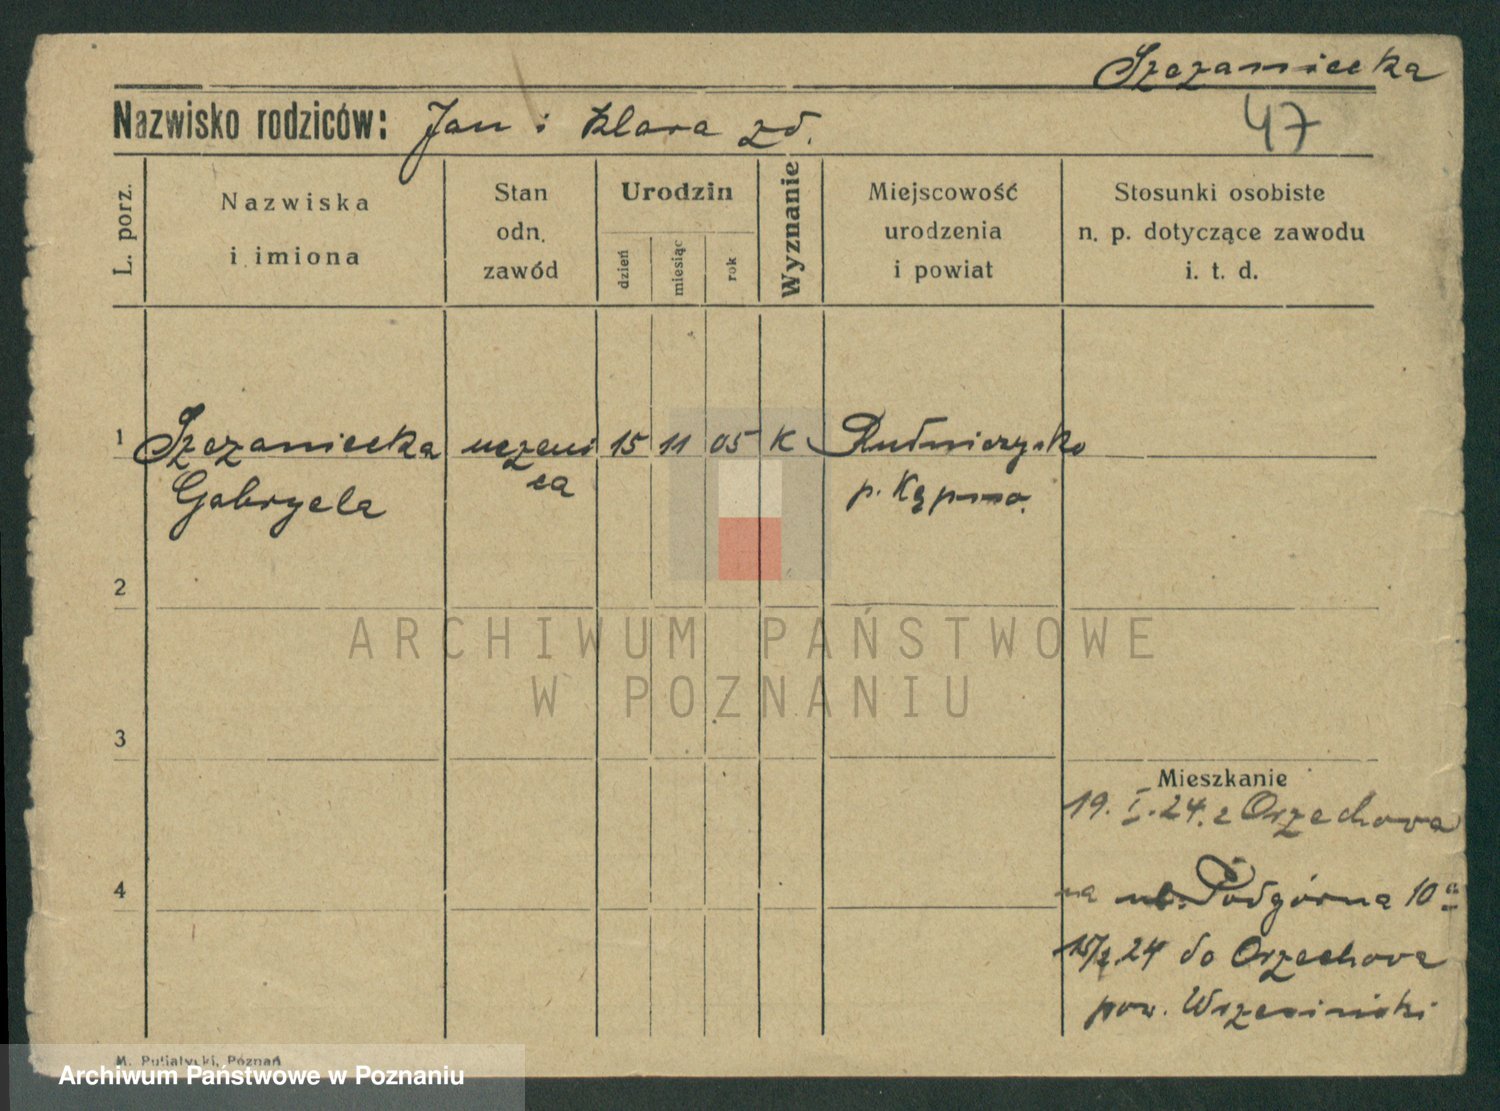 Szczaniecka
Nazwisko rodziców: Jan i Klara zd.
47
L. porz.
Nazwiska
i imiona
Stan
odn.
zawód
Urodzin
dzień
miesiąc
rok
Wyznanie
Miejscowość
urodzenia
i powiat
Stosunki osobiste
n. p. dotyczące zawodu
i. t. d.
1 Szczaniecka uczeni 15 11 05 K Rudniczysko
Gabryela ca p. Kępno.
2
ARCHIWUM PAŃSTWOWE
W POZNANIU
3
Mieszkanie
19. I. 24. z Orzechowa
4
na ul. Podgórna 10a
15/2 24 do Orzechowa
pow. Wrzesiński
M. Putiatycki, Poznań
Archiwum Państwowe w Poznaniu